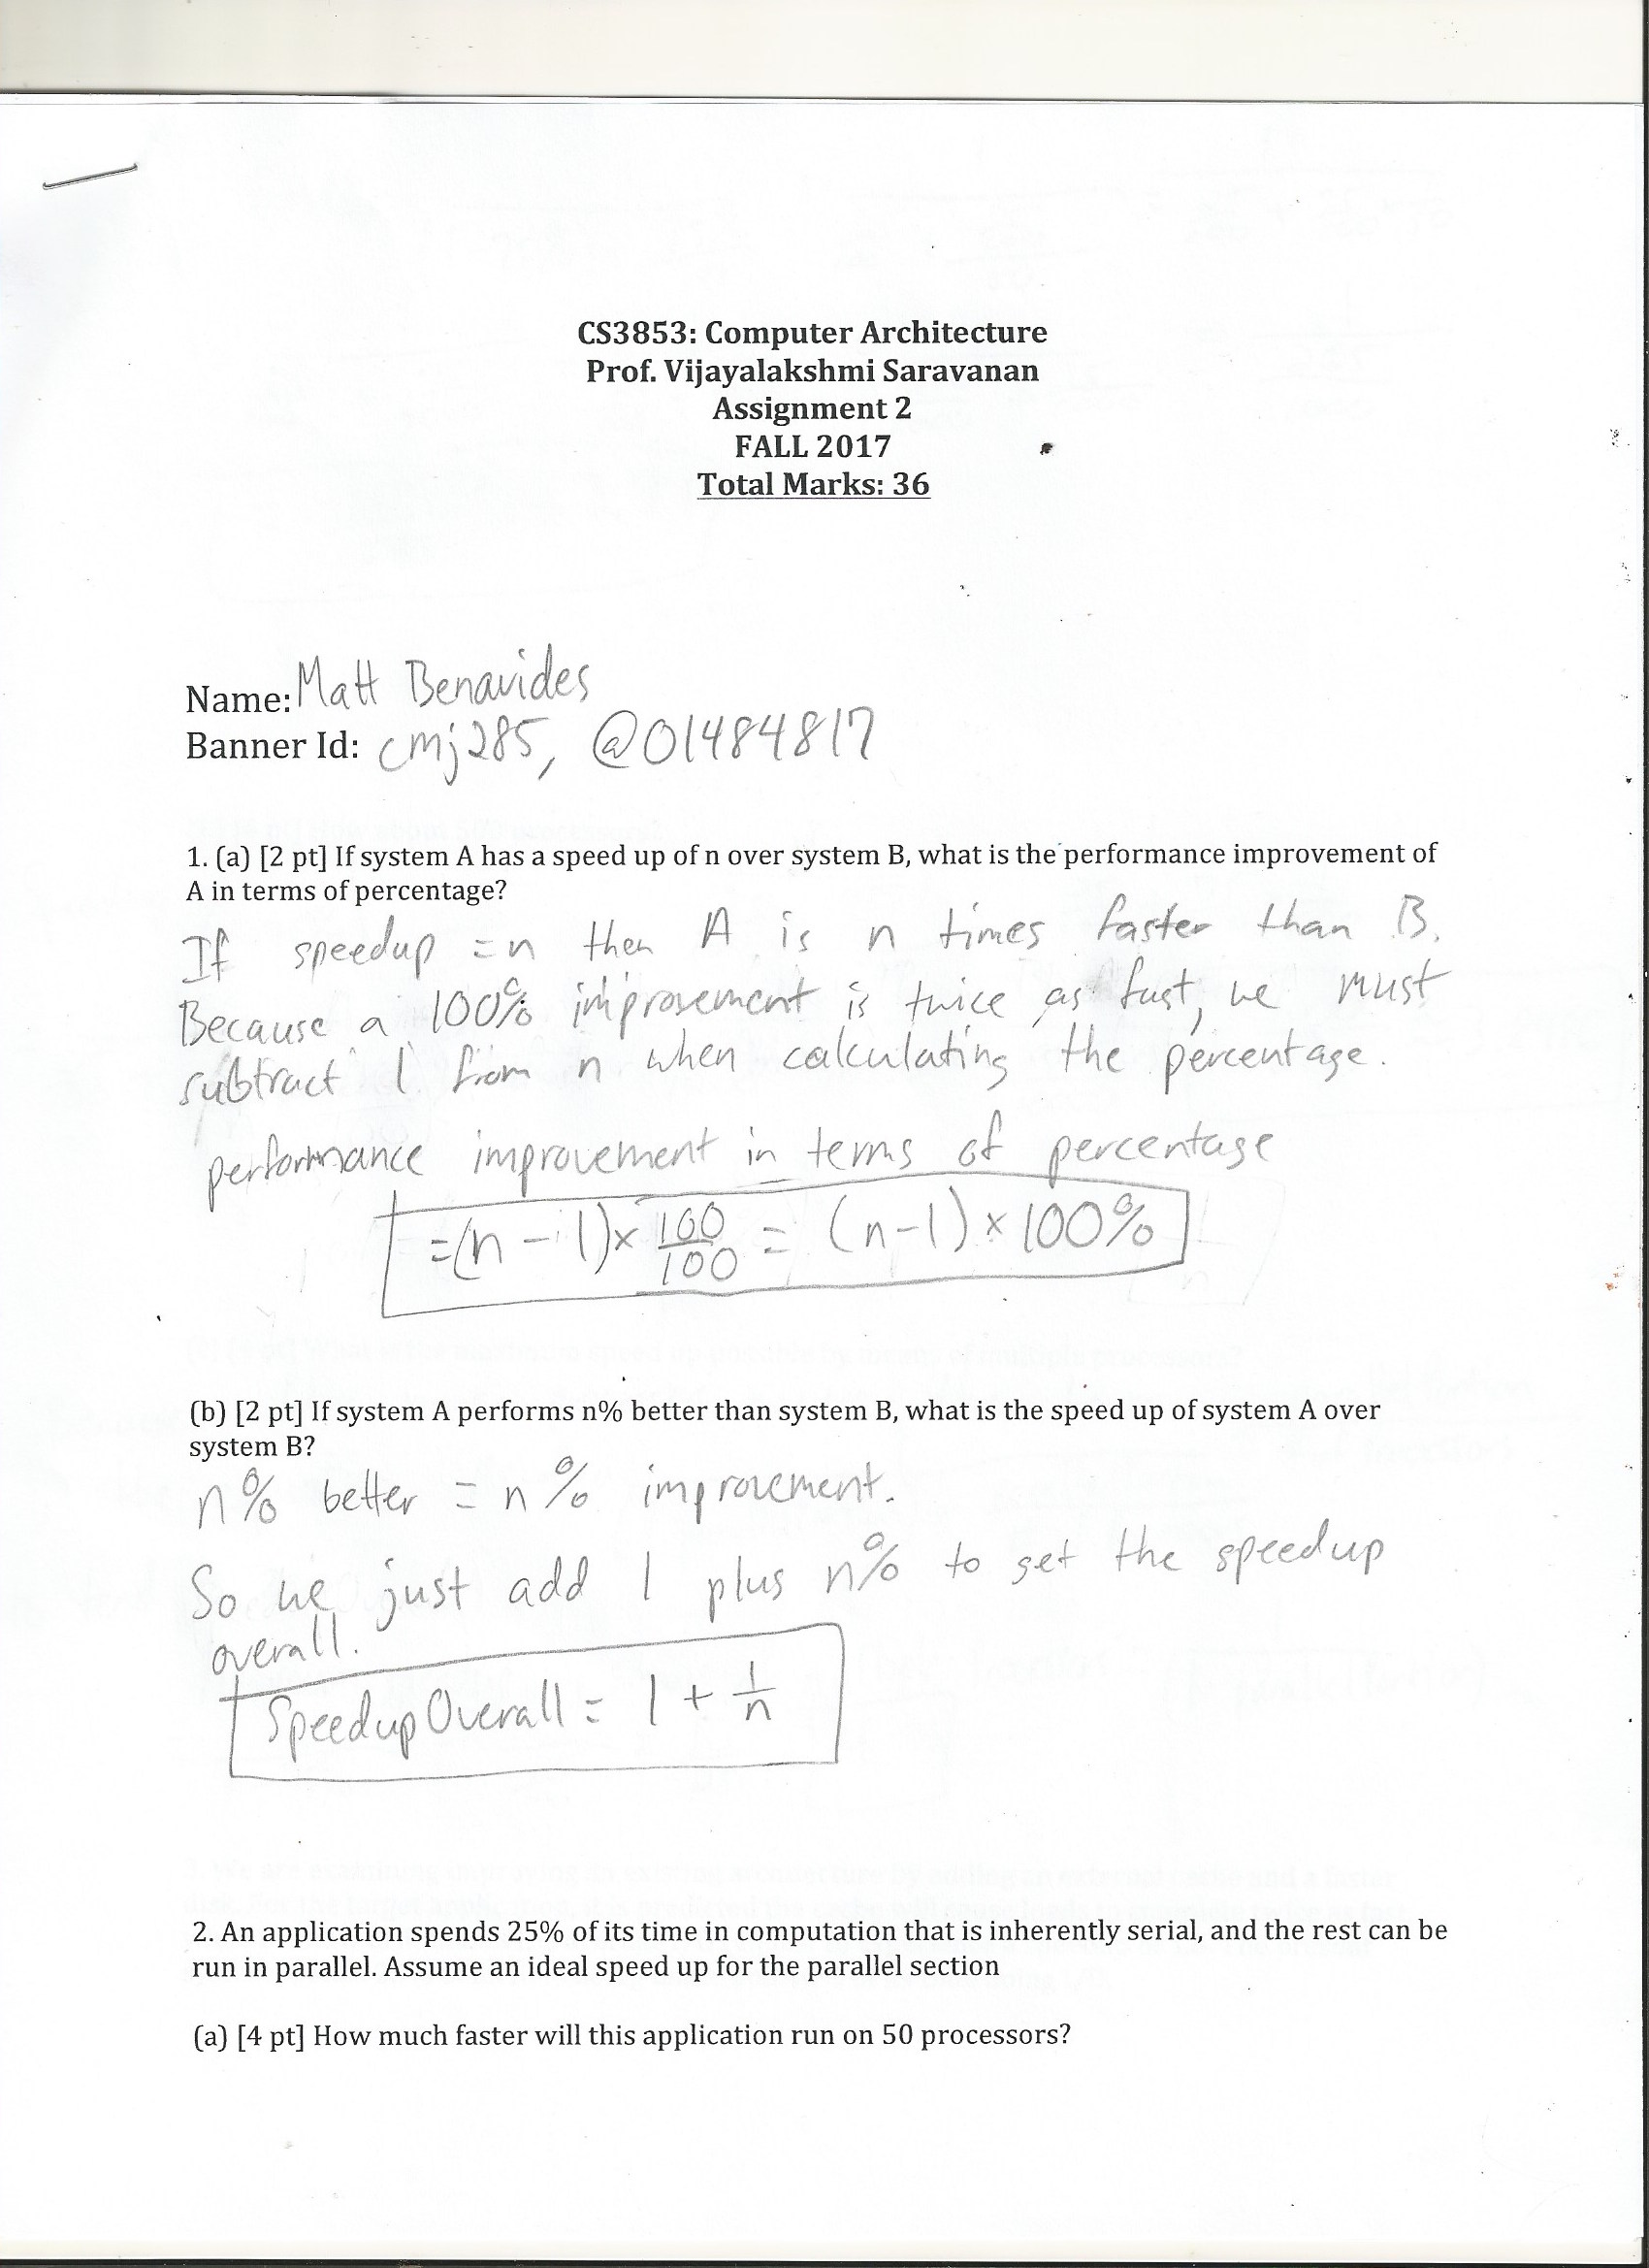 CS3853: Computer Architecture
Prof. Vijayalakshmi Saravanan
Assignment 2
FALL 2017
Total Marks: 36
Name: Matt Benavides
Banner Id: cmj285, @01484817
1. (a) [2 pt] If system A has a speed up of n over system B, what is the performance improvement of
A in terms of percentage?
If speedup = n then A is n times faster than B.
Because a 100% improvement is twice as fast, we must
subtract 1 from n when calculating the percentage.
performance improvement in terms of percentage
= (n - 1) × 100/100 = (n-1) × 100%
(b) [2 pt] If system A performs n% better than system B, what is the speed up of system A over
system B?
n% better = n% improvement.
So we just add 1 plus n% to get the speedup
overall.
Speedup Overall = 1 + 1/n
2. An application spends 25% of its time in computation that is inherently serial, and the rest can be
run in parallel. Assume an ideal speed up for the parallel section
(a) [4 pt] How much faster will this application run on 50 processors?